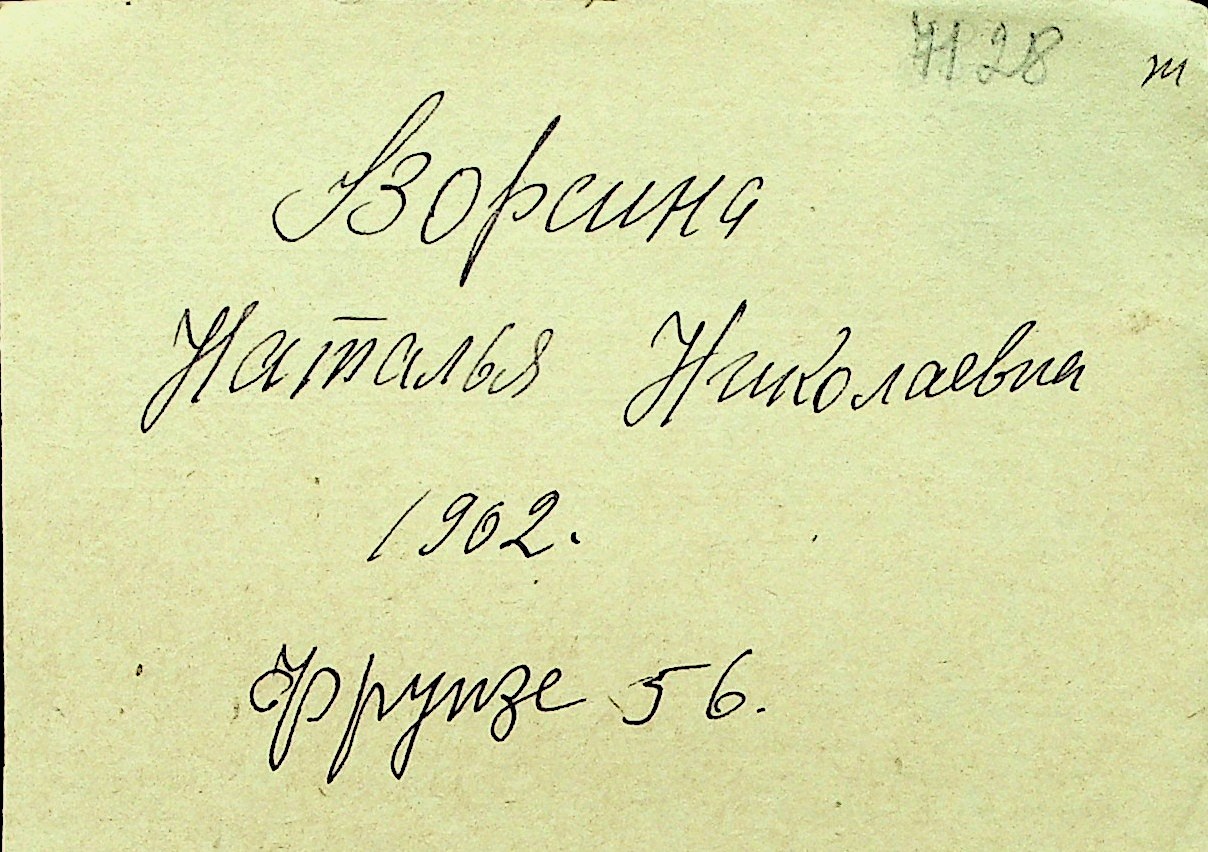 7128 т
Ворсина
Наталья Николаевна
1902.
Фрунзе 56.